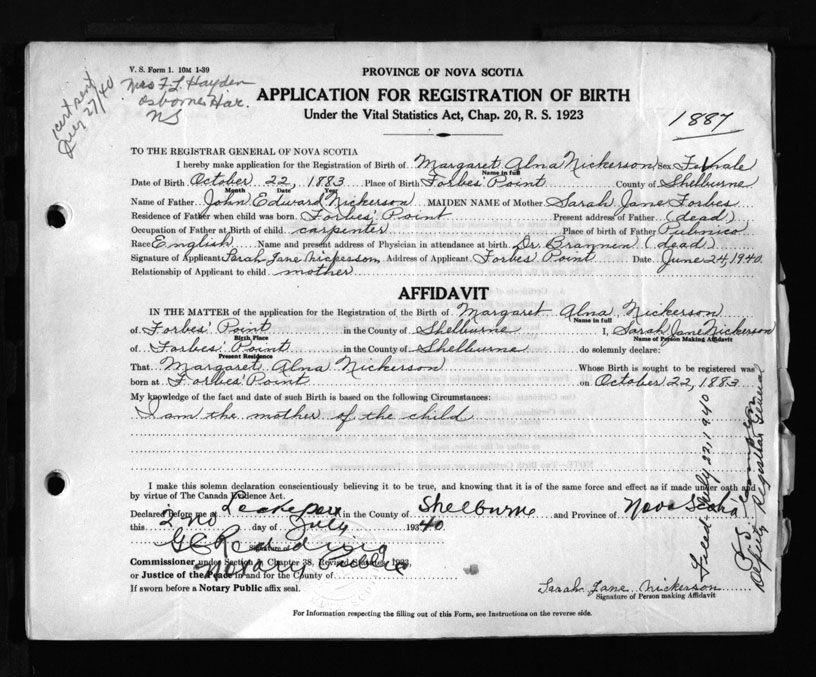 V. S. Form 1. 10M 1-39
Mrs F. L. Hayden
Osborne Har.
NS
cert sent
27/40
PROVINCE OF NOVA SCOTIA
APPLICATION FOR REGISTRATION OF BIRTH
Under the Vital Statistics Act, Chap. 20, R. S. 1923
1887
TO THE REGISTRAR GENERAL OF NOVA SCOTIA
I hereby make application for the Registration of Birth of Margaret Alna Nickerson Sex Female
Name in full
Date of Birth October 22, 1883 Place of Birth Forbes' Point County of Shelburne
Month Date Year
Name of Father John Edward Nickerson MAIDEN NAME of Mother Sarah Jane Forbes
Residence of Father when child was born. Forbes' Point Present address of Father (dead)
Occupation of Father at Birth of child. carpenter Place of birth of Father Pubnico
Race English Name and present address of Physician in attendance at birth. Dr. Brannen (dead)
Signature of Applicant Sarah Jane Nickerson Address of Applicant Forbes Point Date June 24, 1940
Relationship of Applicant to child mother
AFFIDAVIT
IN THE MATTER of the application for the Registration of the Birth of Margaret Alna Nickerson
Name in full
of Forbes' Point in the County of Shelburne I, Sarah Jane Nickerson
Birth Place Name of Person Making Affidavit
of Forbes' Point in the County of Shelburne do solemnly declare:
Present Residence
That Margaret Alna Nickerson Whose Birth is sought to be registered was
born at Forbes' Point on October 22, 1883
My knowledge of the fact and date of such Birth is based on the following Circumstances:
I am the mother of the child
I make this solemn declaration conscientiously believing it to be true, and knowing that it is of the same force and effect as if made under oath and
by virtue of The Canada Evidence Act.
Declared before me at in the County of Shelburne and Province of Nova Scotia
this 2nd day of July 1940
Signature of
Notary Public
Commissioner under Section Chapter 38, Revised Statutes, 1923,
or Justice of the Peace in and for the County of
If sworn before a Notary Public affix seal.
Sarah Jane Nickerson
Signature of Person making Affidavit
For Information respecting the filling out of this Form, see Instructions on the reverse side.
Filed July 22, 1940
Deputy Registrar General